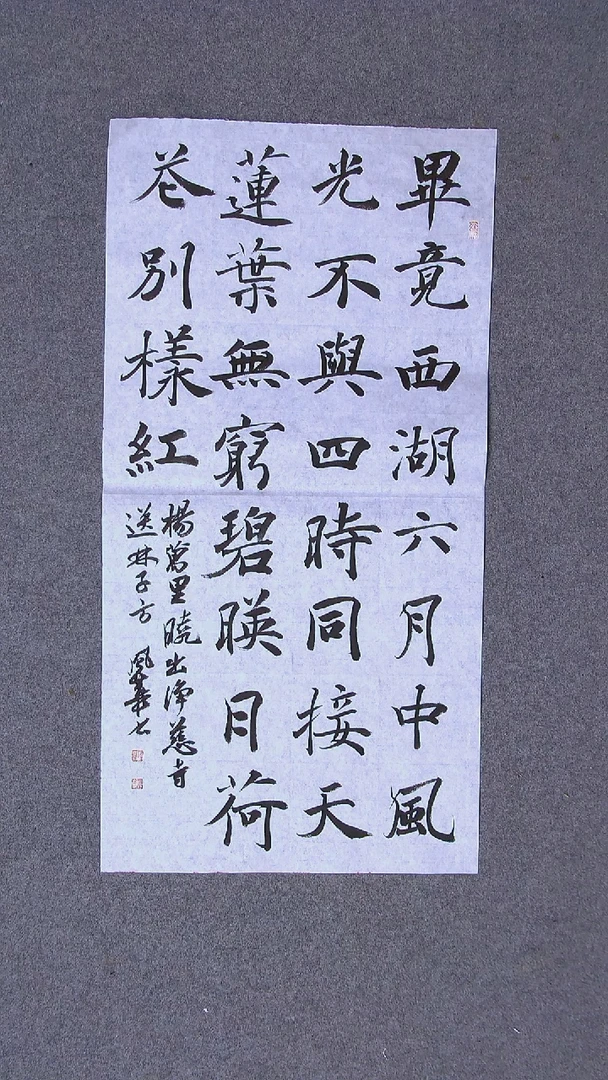 畢竟西湖六月中風
光不與四時同接天
蓮葉無窮碧暎日荷
花別樣紅
楊萬里曉出淨慈寺
送林子方 鳳華書